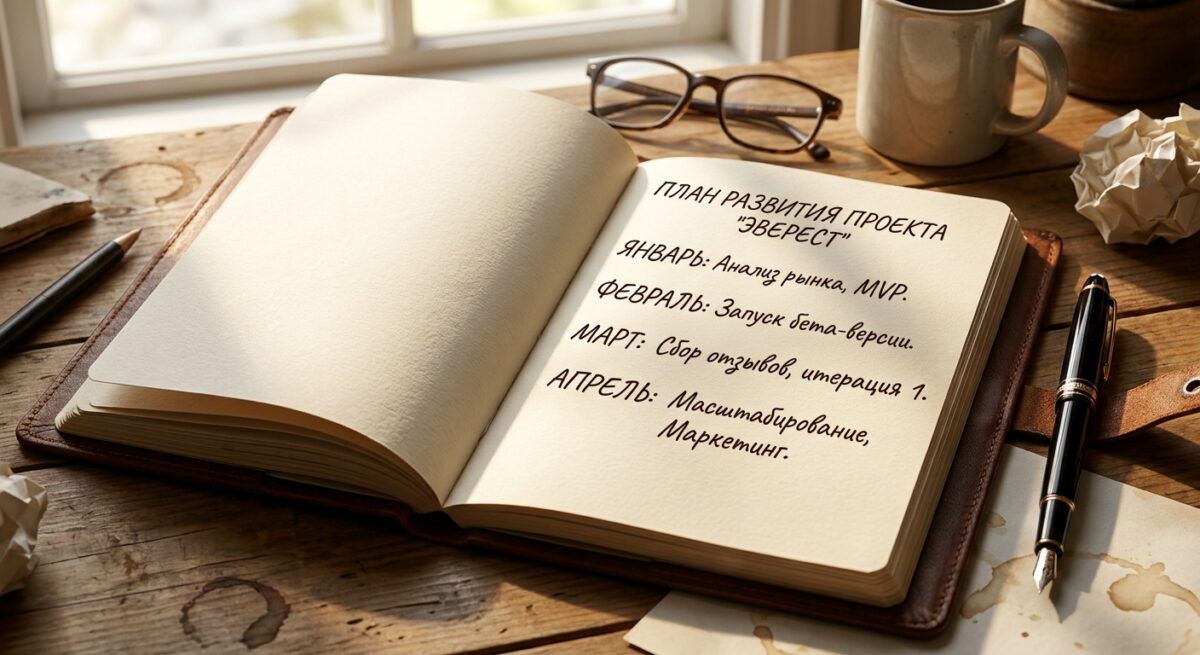 ПЛАН РАЗВИТИЯ ПРОЕКТА
"ЭВЕРЕСТ"
ЯНВАРЬ: Анализ рынка, MVP.
ФЕВРАЛЬ: Запуск бета-версии.
МАРТ: Сбор отзывов, итерация 1.
АПРЕЛЬ: Масштабирование,
Маркетинг.